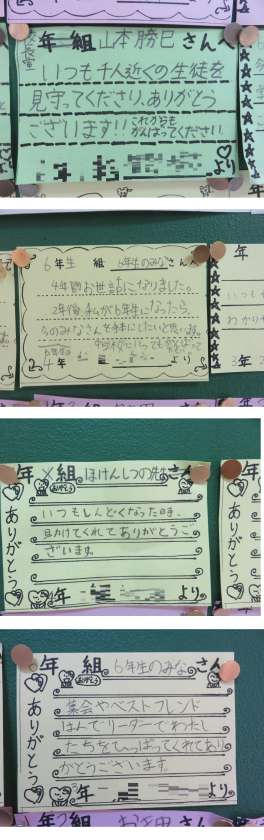 年 組 山本勝巳さんへ
いつも千人近くの生徒を
見守ってくださり、ありがとう
ございます!! これからも
がんばってください。
より
6年生 組 6年生のみなさんへ
4年間お世話になりました。
2年後、私が6年生になったら、
今のみなさんを手本にしたいと思います。
中学校に行っても
4年 より
年
いつも
わかり
3年
年 ✕組 ほけんしつの先生さんへ
ありがとう
ありがとう
いつもしんどくなった時、
助けてくれてありがとうご
ざいます。
年 より
年
ありがとう
年 組 6年生のみなさんへ
ありがとう
ありがとう
集会やベストフレンド
はんでリーダーでわたし
たちをひっぱってくれてあり
がとうございます。
年 より